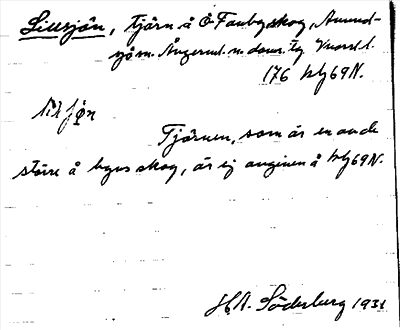 Lillsjön, tjärn å Ö Fanbyskog, Amund-
sjö sn. Ångerml. n. doms. Tg Vnorrl. l.
176 blg 69 N.
Tjärnen, som är en av de
större å byns skog, är ej angiven å blg 69 N.
H. A. Söderberg 1931